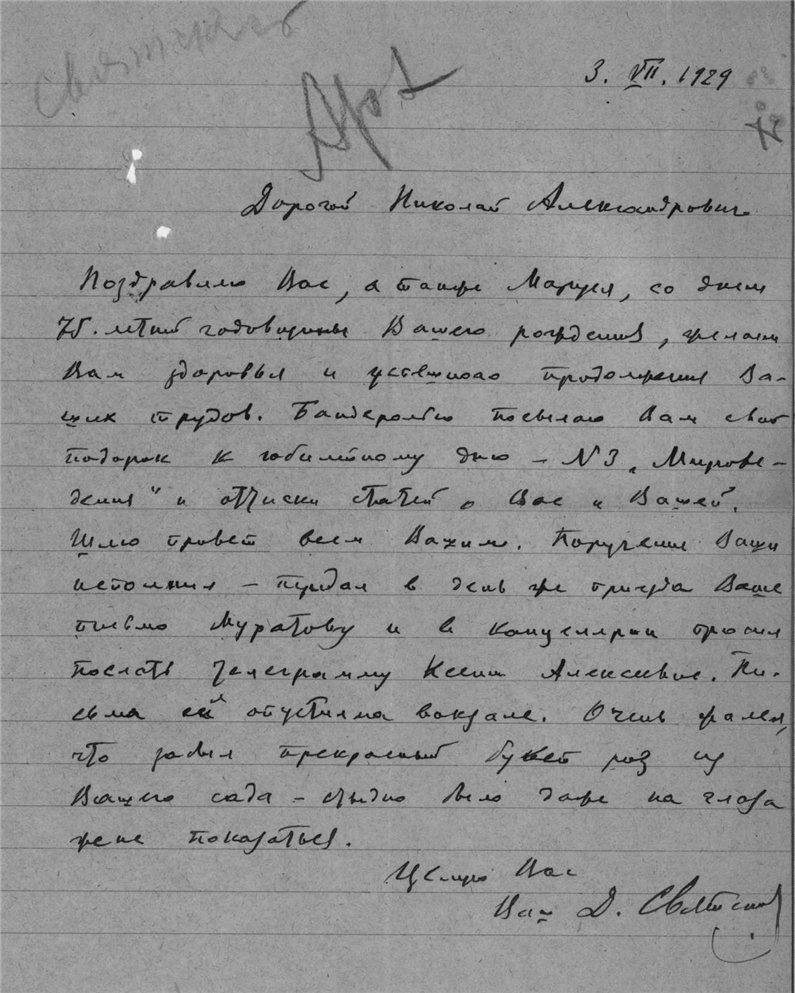 Святский
Арх
3. VII. 1929
Дорогой Николай Александрович
Поздравляю Вас, а также Маруся, со днем
75-летней годовщины Вашего рождения, желаем
Вам здоровья и успешного продолжения Ва-
ших трудов. Бандеролью посылаю Вам свой
подарок к юбилейному дню – N 3 „Мирове-
дения" и оттиски статей о Вас и Вашей.
Шлю привет всем Вашим. Поручения Ваши
исполнил – передал в день же приезда Ваше
письмо Муратову и в канцелярии просил
послать телеграмму Ксении Алексеевне. Пи-
сьма ей опустил на вокзале. Очень жалел,
что забыл прекрасный букет роз из
Вашего сада – стыдно было даже на глаза
жене показаться.
Целую Вас
Ваш Д. Святский